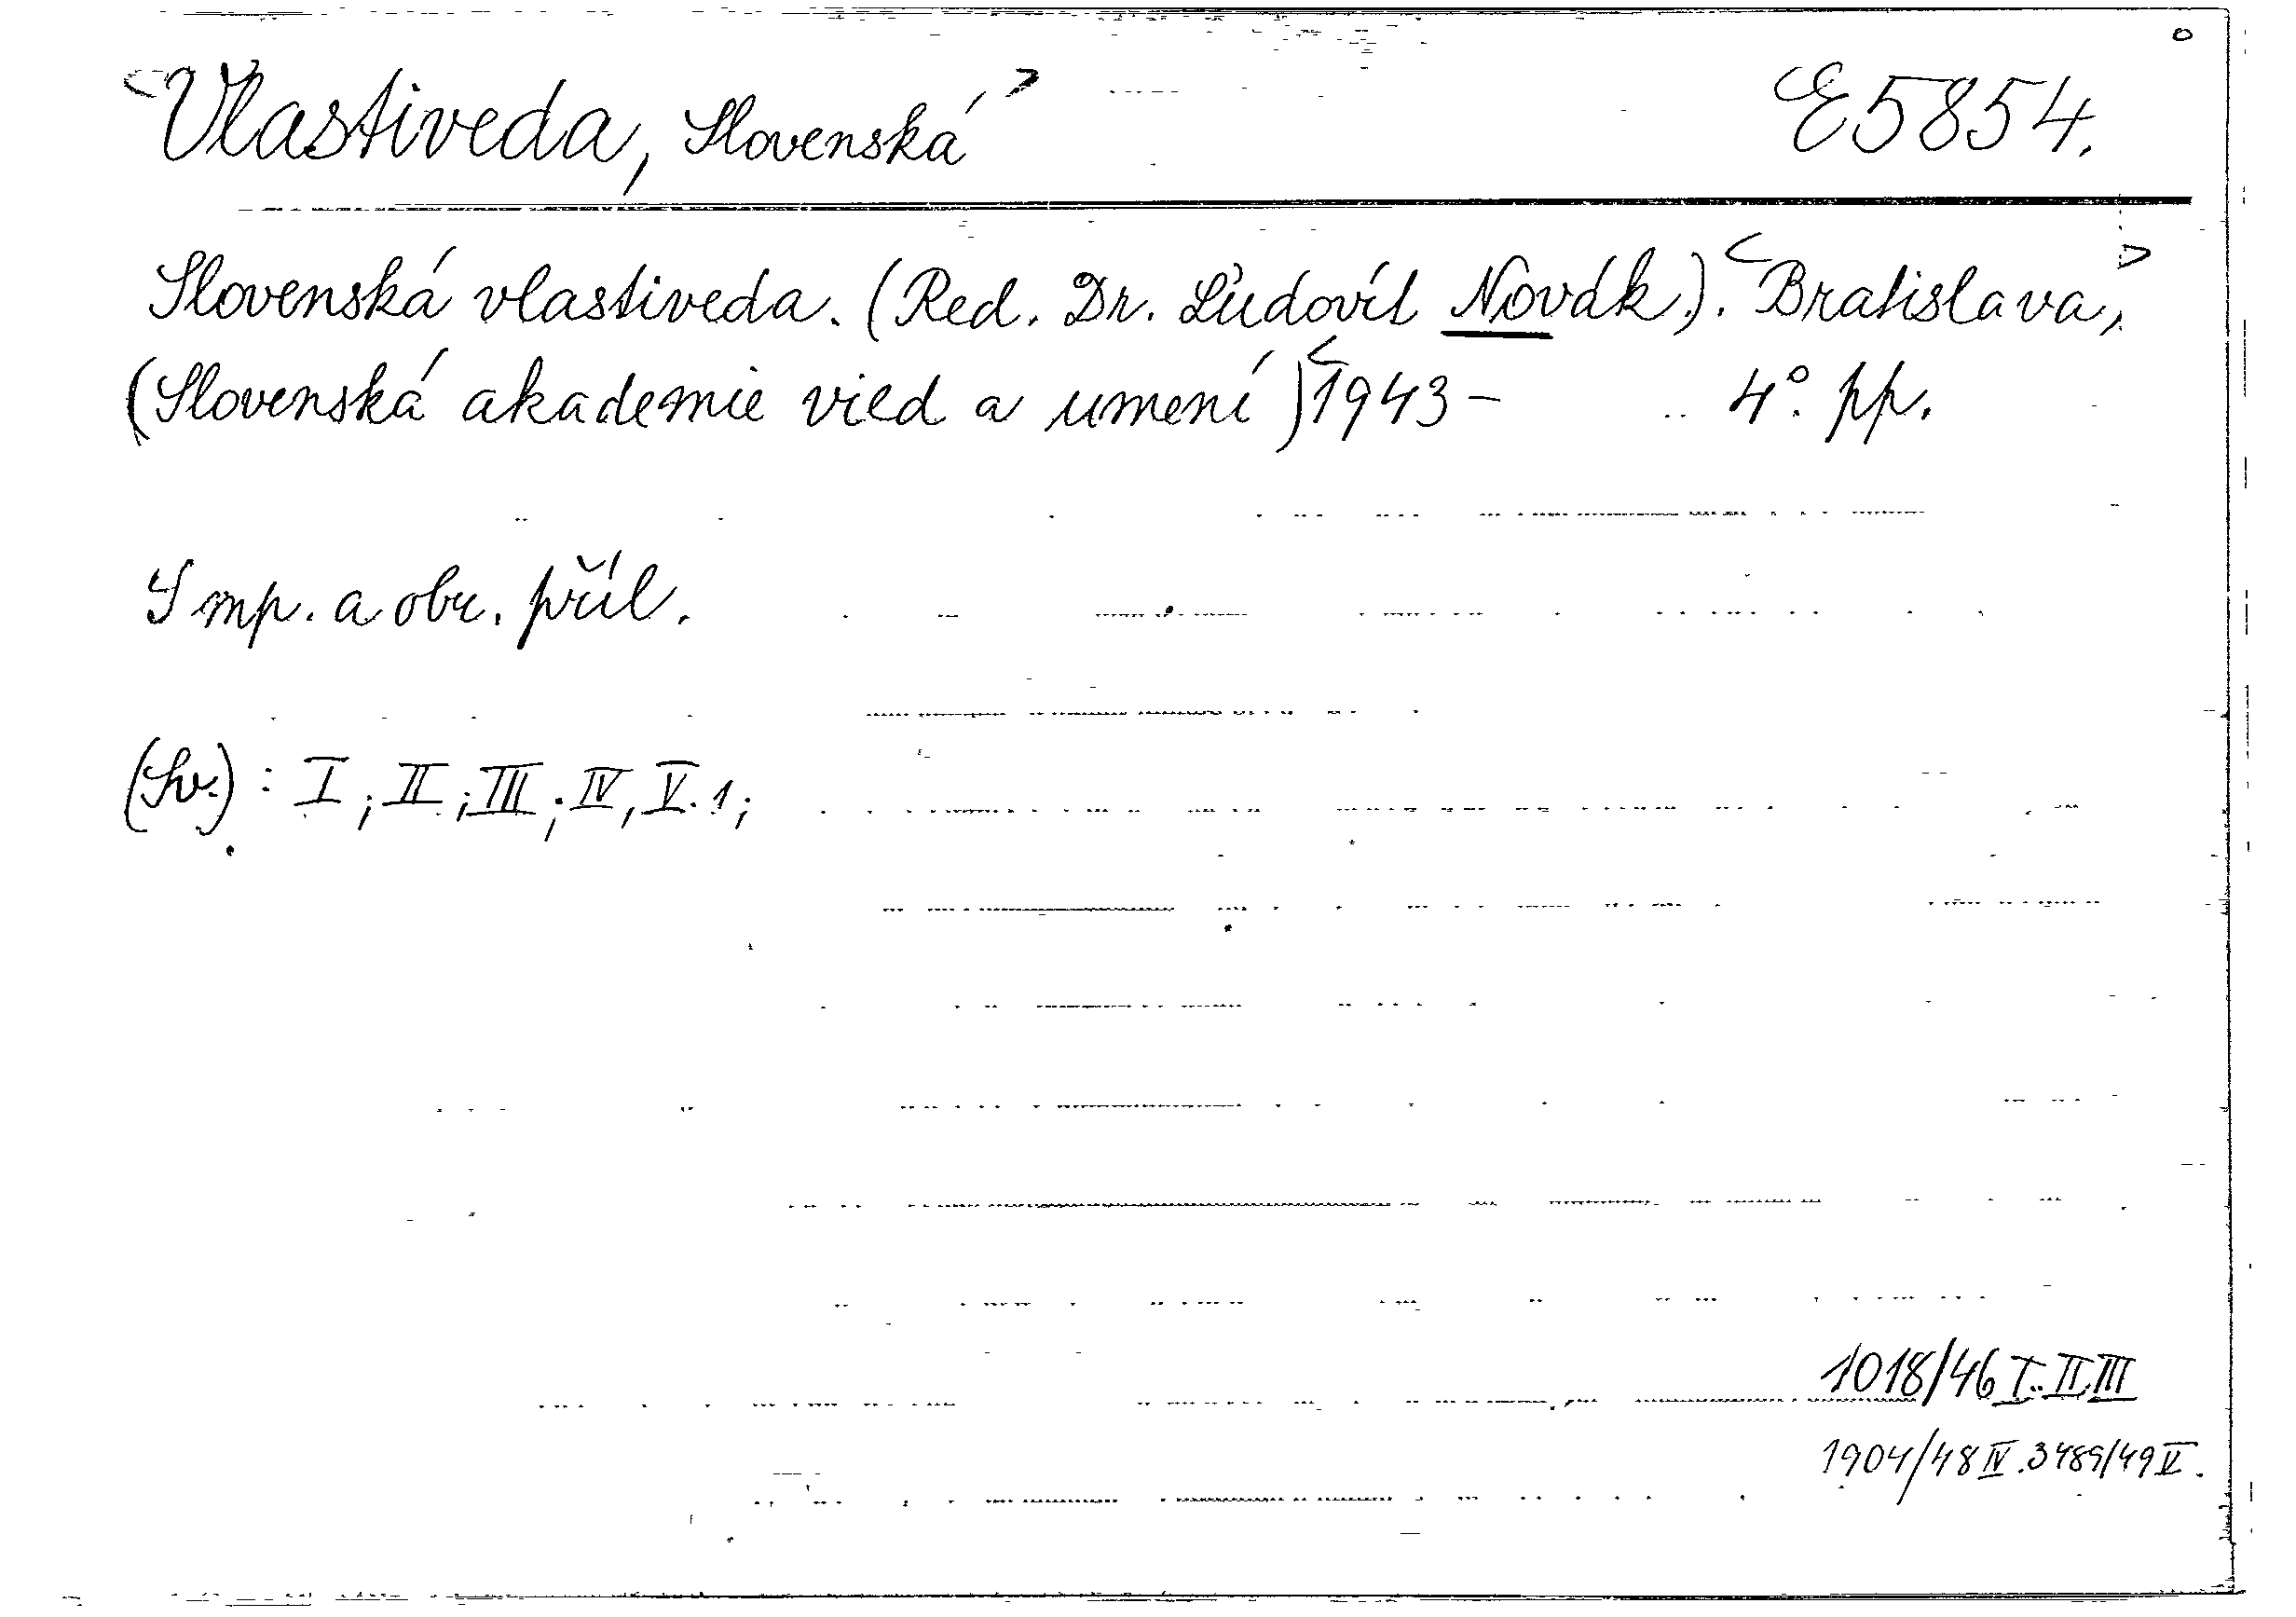 <Vlastiveda, Slovenská> E5854.
Slovenská vlastiveda. (Red. Dr. Ľudovít Novák.). <Bratislava,>
(Slovenská akademie vied a umení) <1943- 4°. pp.
S mp. a obr. příl.
(Sv.): I; II; III; IV, V. 1;
1018/46 I.. II. III
1904/48 IV. 3489/49 V.